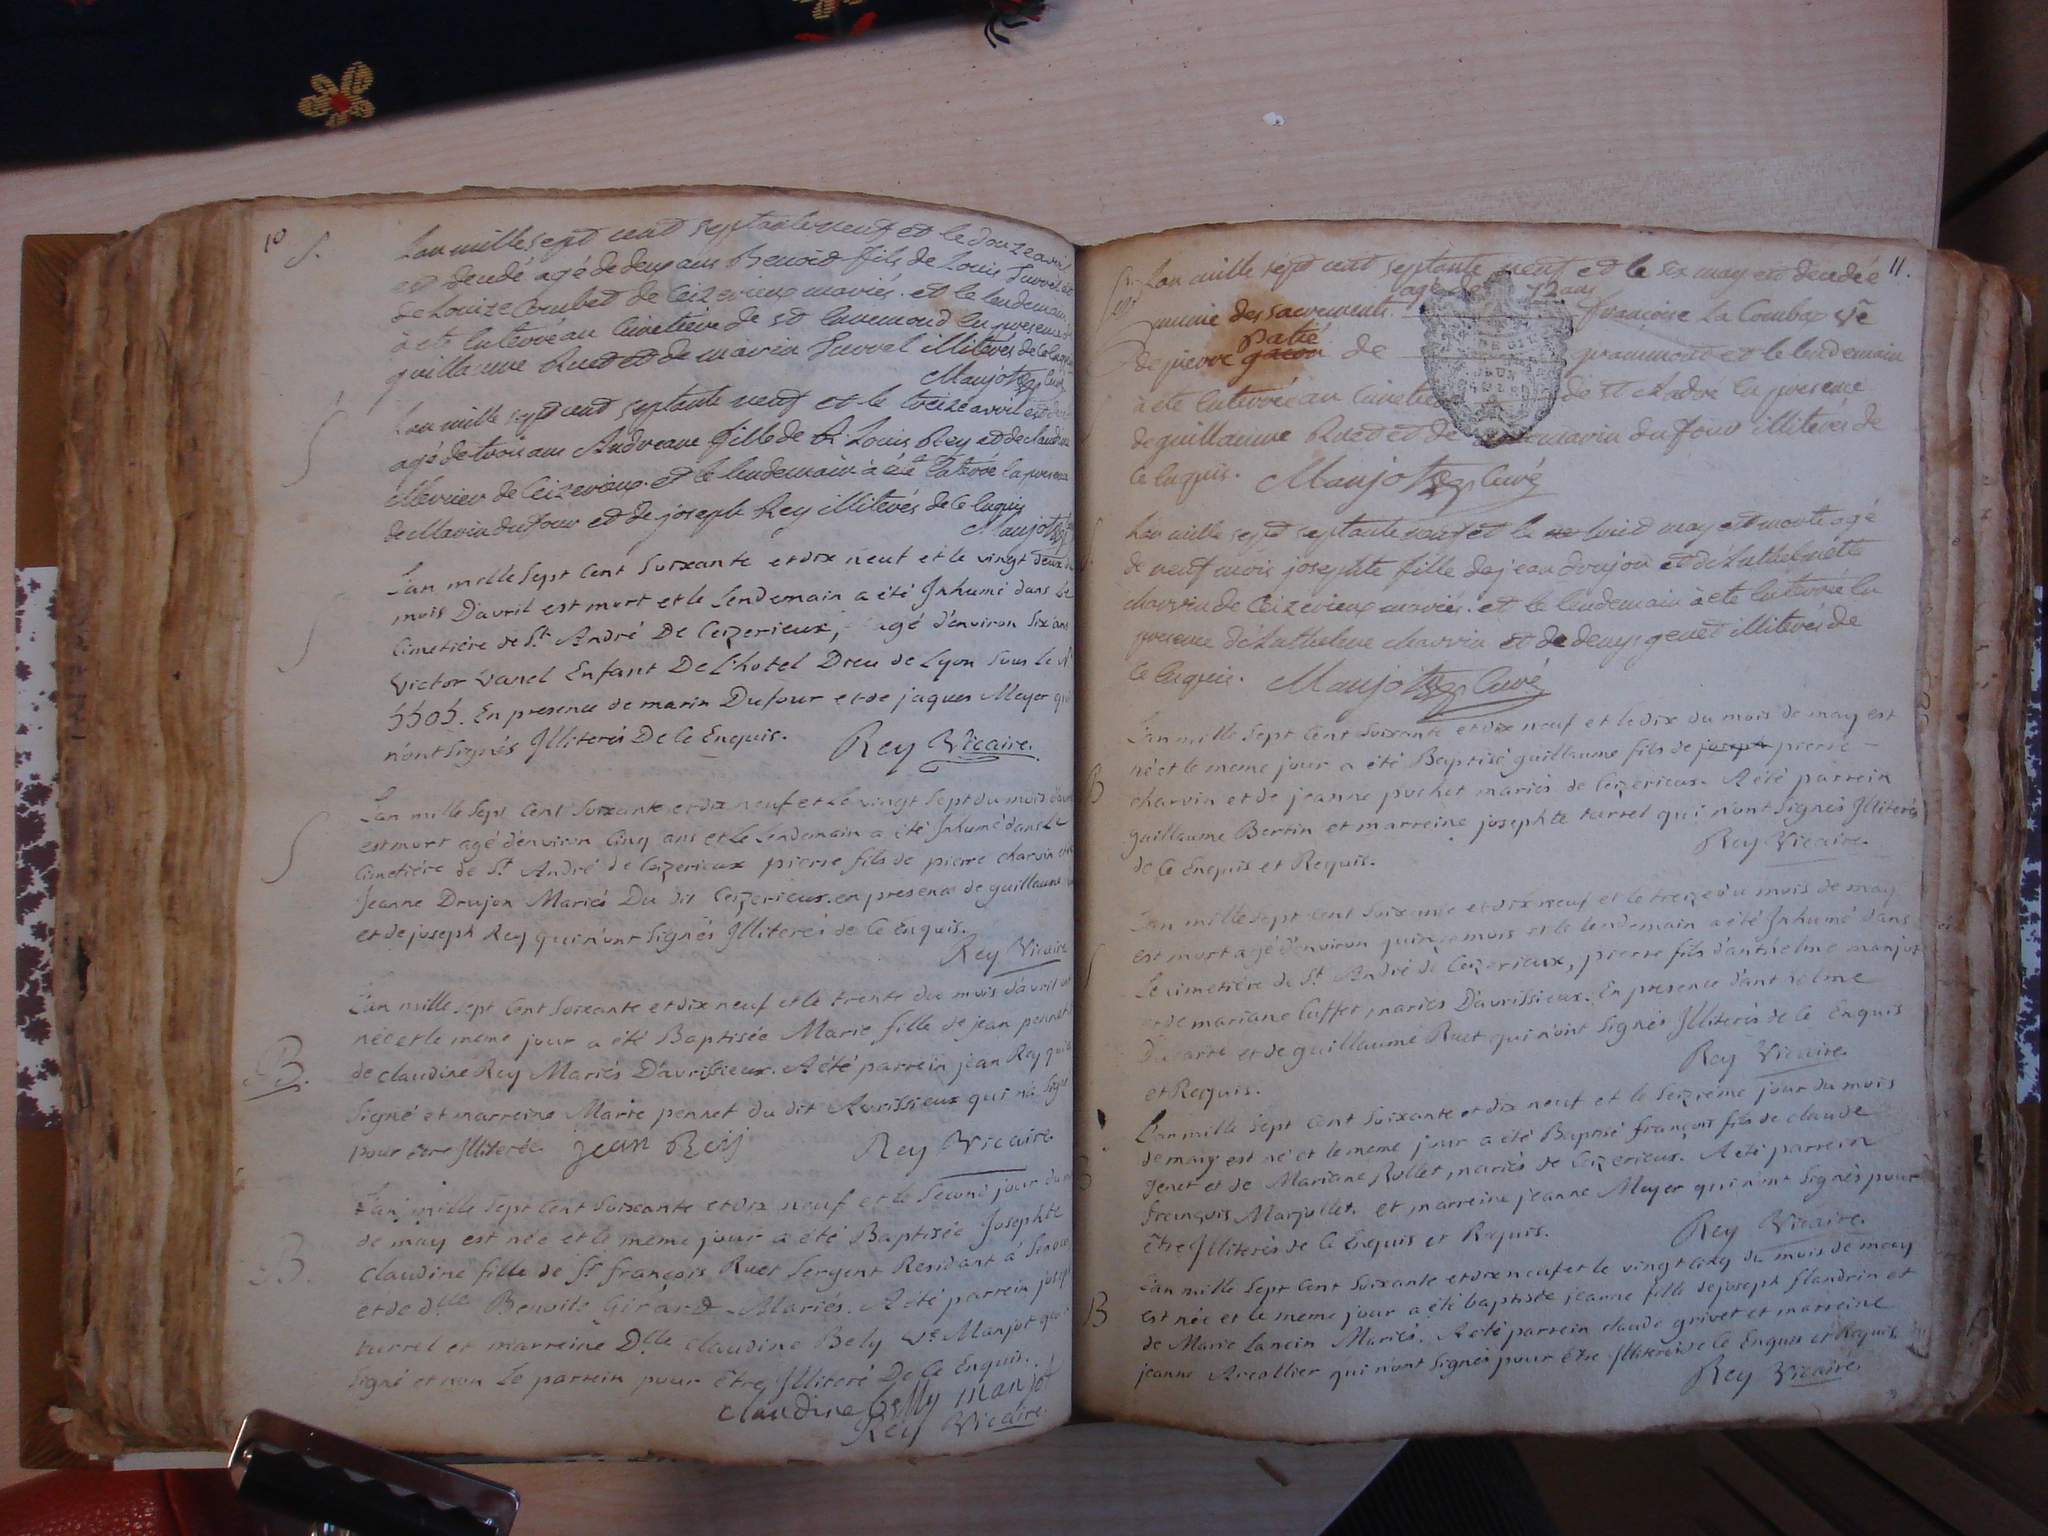 10
S.
L'an mille sept cent septante neuf et le douze avril
est decedé agé de deux ans Benoit fils de Louis Turrel et
de Louize Combet de Ceizerieux mariés. et le lendemain
à eté enterré au Cimetière de St en presence de
guillaume Ruet et de marin Turrel illiterés de ce enquis
Manjot Curé
S
L'an mille sept cent septante neuf et le treize avril est
agé de trois ans Andreane fille de Louis Rey et de claudine
Mervier de Ceizerieux. et le lendemain à eté enterré en presence
de Marin Dufour et de joseph Rey illiterés de ce enquis
Manjot
S
L'an mille sept cent soixante et dix neuf et le vingt deux du
mois D'avril est mort et le lendemain a été Inhumé dans le
Cimetière de St. André De Ceizerieux, agé d'environ six ans
Victor Vanel Enfant De L'hotel Dieu de Lyon sous le N°
5505. En presence de marin Dufour et de jaques Meyer qui
n'ont signés Illiterés De Ce Enquis.
Rey Vicaire.
S
L'an mille sept cent soixante et dix neuf et le vingt sept du mois d'avril
est mort agé d'environ Cinq ans et le lendemain a été Inhumé dans le
Cimetière de St. André de Ceizerieux pierre fils de pierre charvin et de
Jeanne Drujon Mariés Du dit Ceizerieux. en presence de guillaume
et de joseph Rey qui n'ont signés Illiterés de Ce Enquis.
Rey Vicaire
B.
L'an mille sept cent soixante et dix neuf et le trente du mois d'avril est
née et le meme jour a été Baptisée Marie fille de jean pennet
de claudine Rey Mariés D'avrissieux. A été parrein jean Rey qui a
signé et marreine Marie pennet du dit Avrissieux qui n'a signé
pour être Illiterée. jean Reij Rey Vicaire.
B.
L'an mille sept cent soixante et dix neuf et le second jour du mois
de may est née et le meme jour a été Baptisée Josephte
Claudine fille de Sr. françois Ruet Sergent Residant à
et de dlle Benoite Girard Mariés. A été parrein joseph
turrel et marreine Dlle claudine Bely Ve. Manjot qui
signé et non le parrein pour être Illiteré De Ce Enquis.
claudine belly manjot
Rey Vicaire.
11.
L'an mille sept cent septante neuf et le six may est decedée
munie des sacrements. agée de 72 ans françoise La Combaz ve
de pierre gacon patié de grammont et le lendemain
à eté enterrée au Cimetière de St Andre en presence
de guillaume Ruet et de marin du four illiterés de
ce enquis. Manjot Curé
S.
L'an mille sept septante neuf et le huit may est morte agé
de neuf mois josephte fille de jean drujon et d'Enthelmette
charvin de Ceizerieux mariés. et le lendemain à eté enterré en
presence d'Enthelme charvin et de denys genet illiterés de
ce enquis. Manjot Curé
B
L'an mille sept cent soixante et dix neuf et le dix du mois de may est
né et le meme jour a été Baptisé guillaume fils de joseph pierre
charvin et de jeanne pochet mariés de Ceizerieux. A été parrein
guillaume Bertin et marreine josephte turrel qui n'ont signés Illiterés
de Ce Enquis et Requis.
Rey Vicaire.
S
L'an mille sept cent soixante et dix neuf et le treize du mois de may
est mort agé d'environ quinze mois et le lendemain a été Inhumé dans
Le cimetière de St. André de Ceizerieux, pierre fils d'anthelme manjot
et de mariane Cuffet mariés D'avrissieux. En presence d'anthelme
Du arre et de guillaume Ruet qui n'ont signés Illiterés de Ce Enquis
et Requis.
Rey Vicaire.
B
L'an mille sept cent soixante et dix neuf et le seizieme jour du mois
de may est né et le meme jour a été Baptisé françois fils de claude
genet et de Mariane Rollet mariés de Ceizerieux. A été parrein
françois Marjollet. et marreine jeanne Meyer qui n'ont signés pour
être Illiterés de Ce Enquis et Requis.
Rey Vicaire.
B
L'an mille sept cent soixante et dix neuf et le vingt cinq du mois de may
est née et le meme jour a été baptisée jeanne fille de joseph flandrin et
de Marie Lancin Mariés. A été parrein claude grivet et marreine
jeanne Arcollier qui n'ont signés pour être Illiterés de Ce Enquis et Requis.
Rey Vicaire.